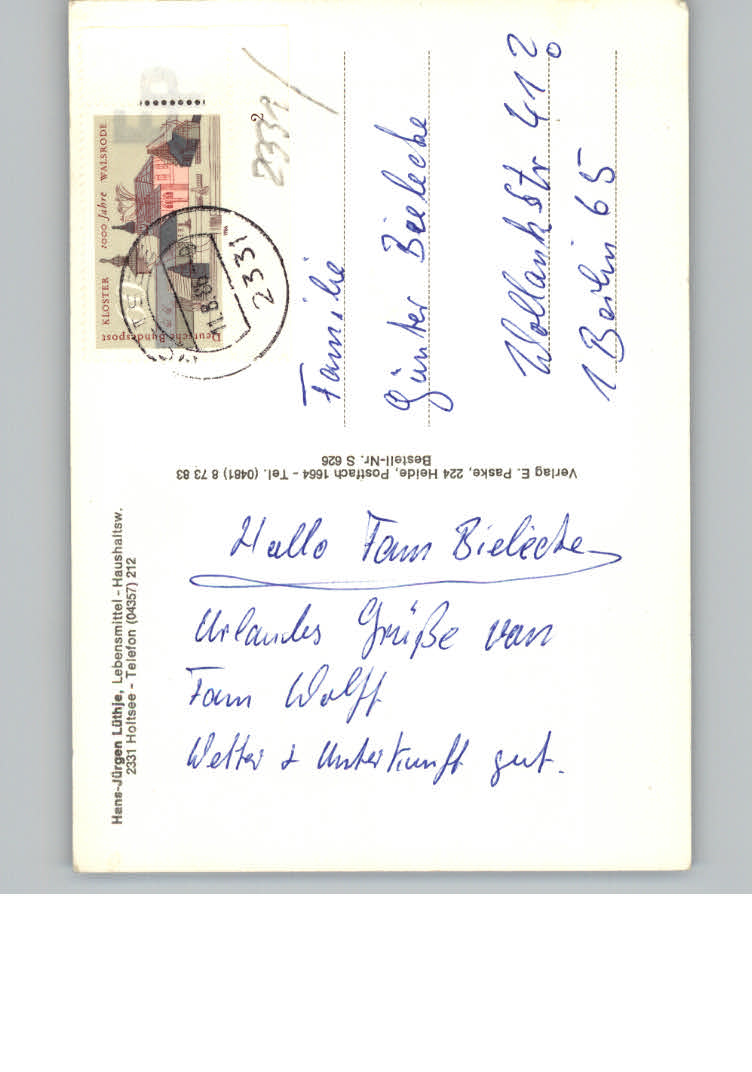 KLOSTER 1000 Jahre WALSRODE
Deutsche Bundespost
1986
11.8.86
2331
2331
Familie
Günter Bielecke
Wollankstr
1 Berlin 65
Verlag E. Paske, 224 Heide, Postfach 1664 - Tel. (0481) 8 73 83
Bestell-Nr. S 626
Hans-Jürgen Lüthje, Lebensmittel - Haushaltsw.
2331 Holtsee - Telefon (04357) 212
Hallo Fam Bielecke
Urlaubs Grüße von
Fam Wolff
Wetter + Unterkunft gut.